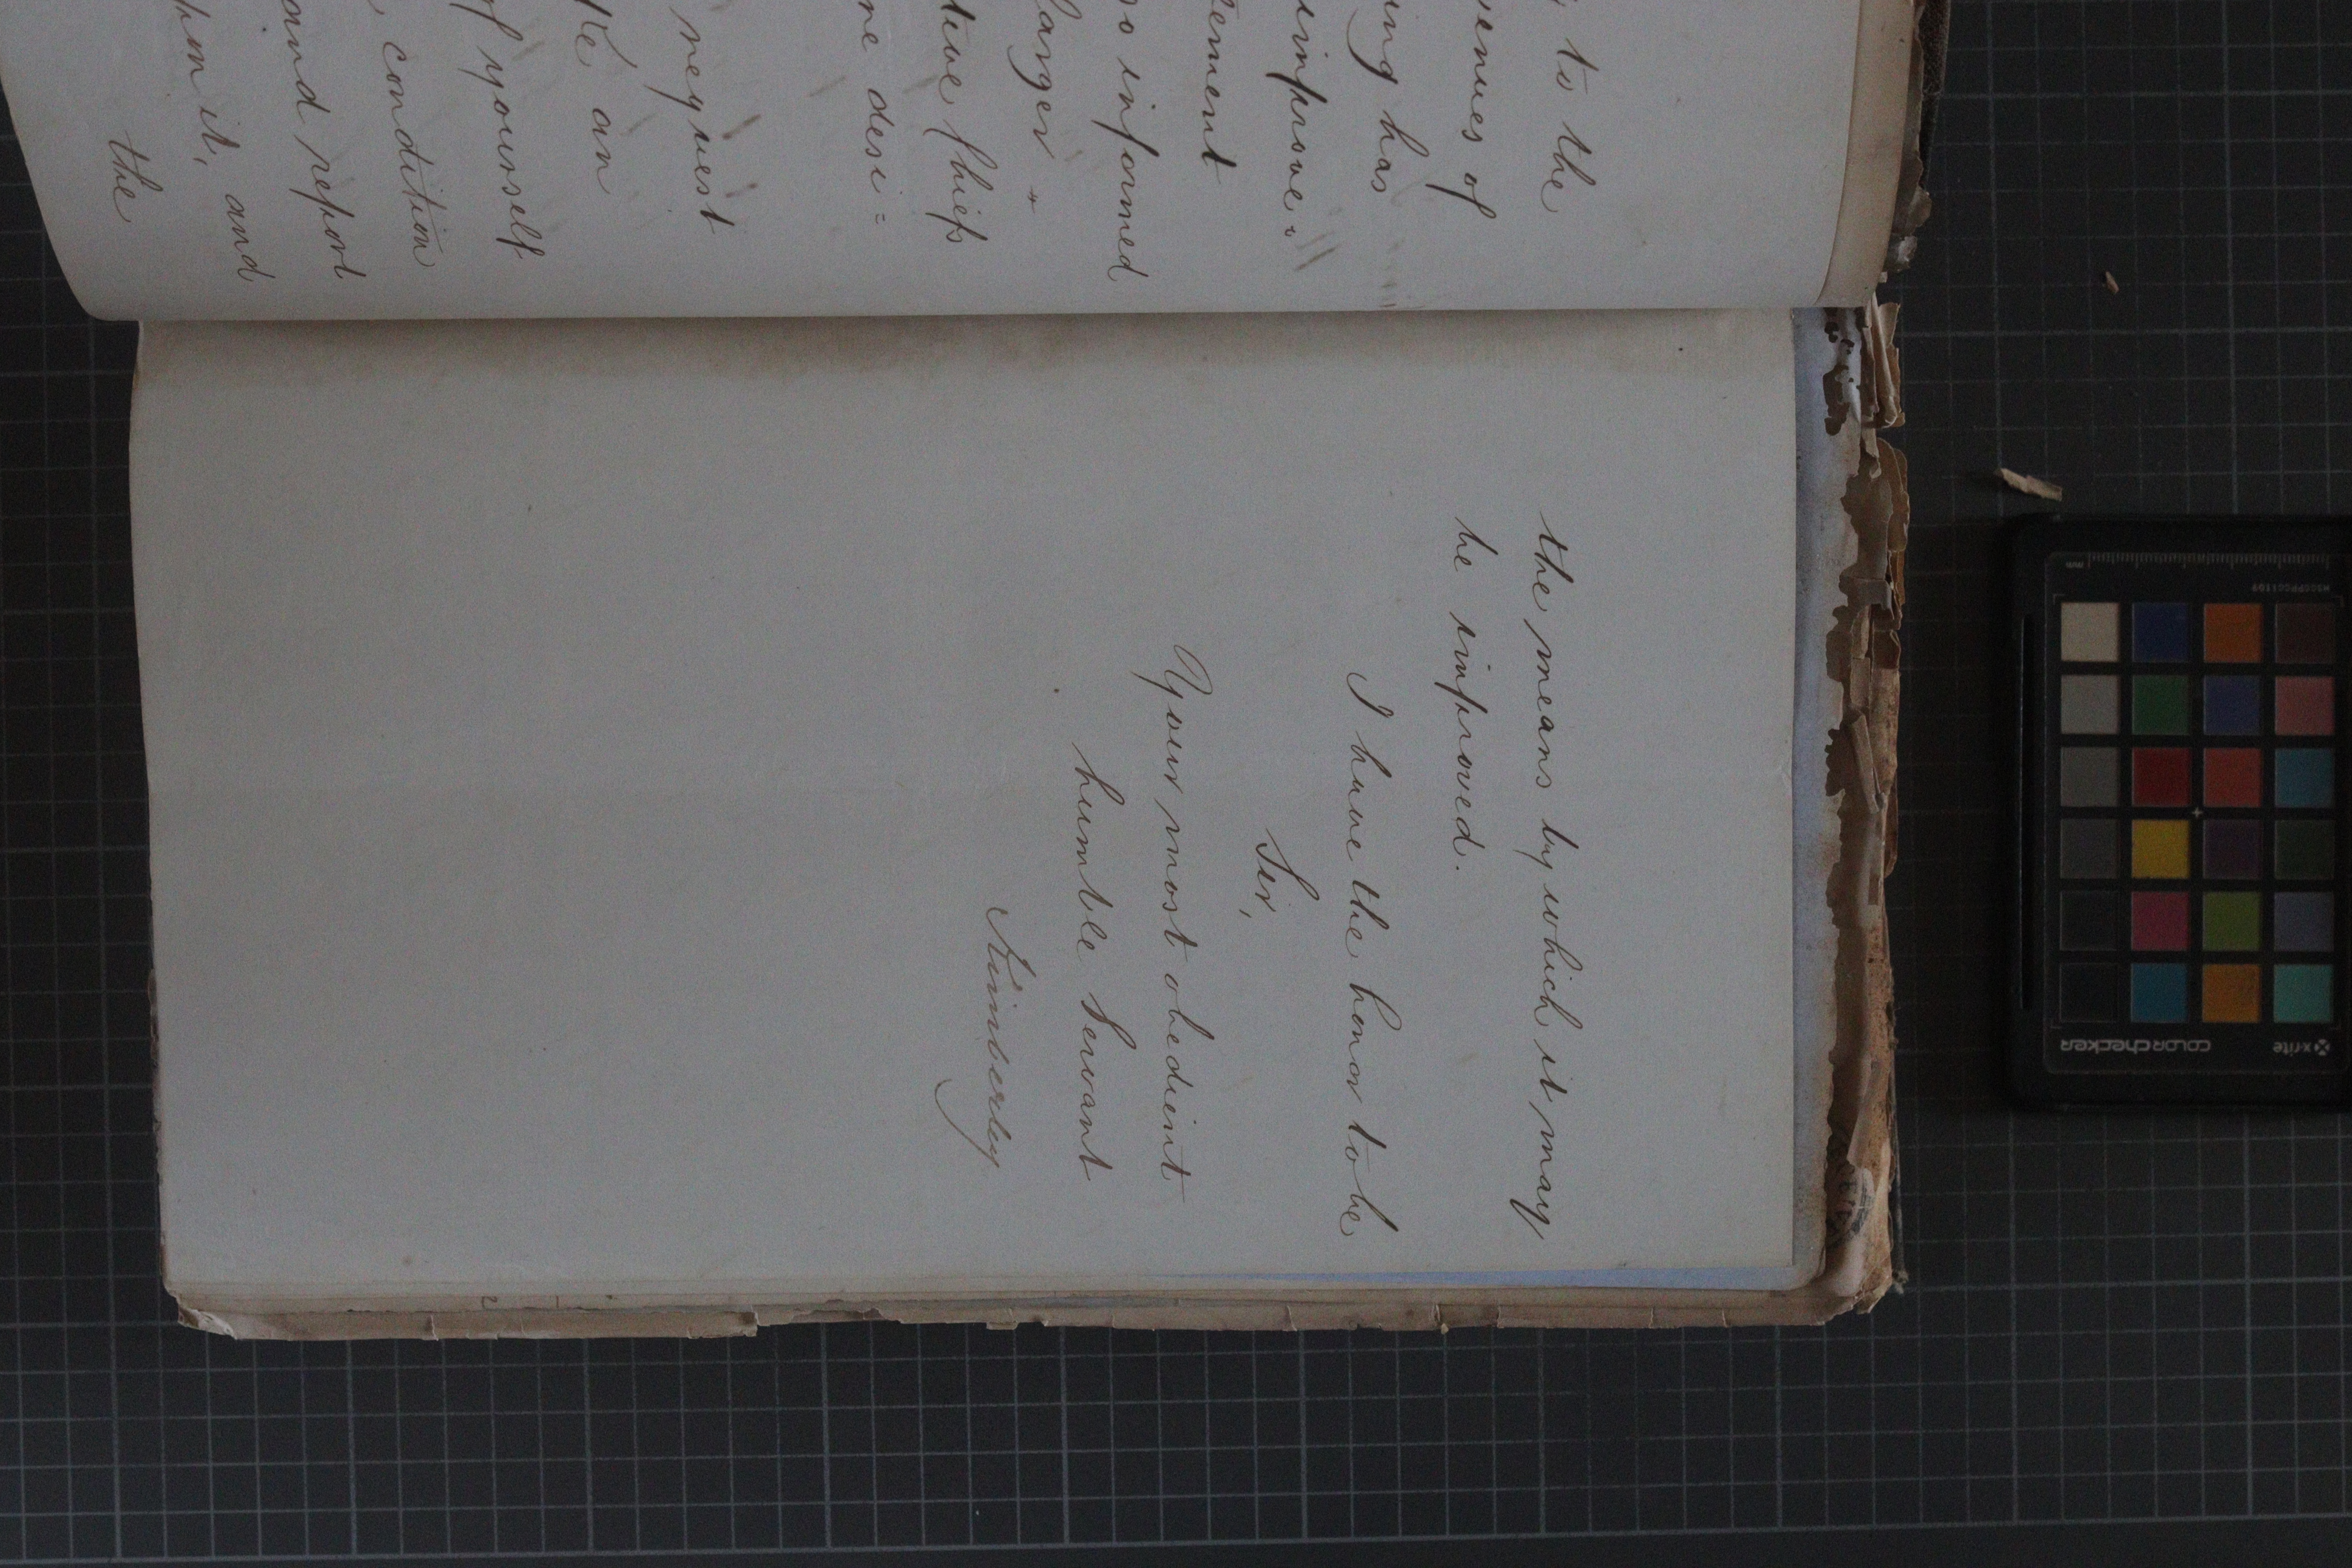 to the
venues of
ing has
improve=
tement
so informed
larger
tive Chiefs
ne desi=
request
ke an
of yourself
condition
and report
pon it, and
the
the means by which it may
be improved.
I have the honor to be
Sir,
Your most obedient
humble Servant
Kimberley
x-rite
colorchecker
MSCCPPCC41109
mm